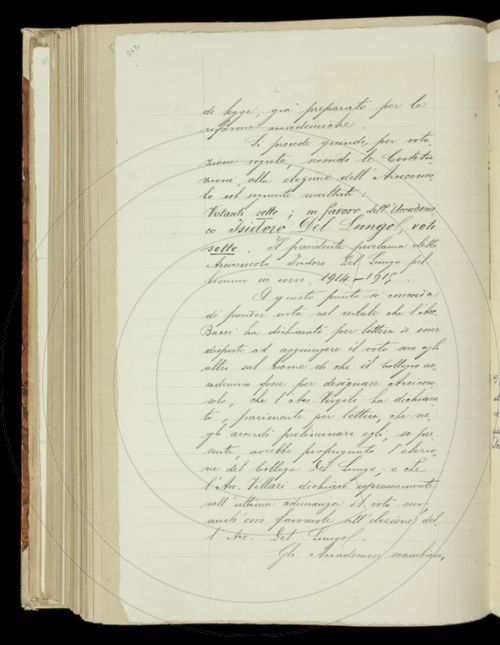 502
di legge, già preparato per le
riforme accademiche.
Si procede quindi, per vota,
zione segreta, secondo le Costitu
zioni, alla elezione dell'Arciconso,
lo col seguente resultato:
Votanti sette; in favore dell'Accademi
co Isidoro Del Lungo, voti
sette. Il presidente proclama eletto
Arciconsolo Isidoro Del Lungo pel
biennio in corso, 1914-1915.
A questo punto si
di prender nota nel verbale che l'Acc.
Bacci ha dichiarato per lettera di esser
disposto ad aggiungere il voto suo agli
altri sul nome di chi il collegio ac,
cademico fosse per designare Arcicon
solo, che l'Acc. Vergili ha dichiara
to, parimente per lettera, che ne,
gli accordi preliminari egli, se pre
sente, avrebbe propugnato l'elezio,
ne del Collega Del Lungo; e che
l'Acc. Villari dichiarò espressamente
nell'ultima adunanza il voto suo
anch'esso favorevole all'elezione del,
l'Acc. Del Lungo.
Gli Accademici scambian,